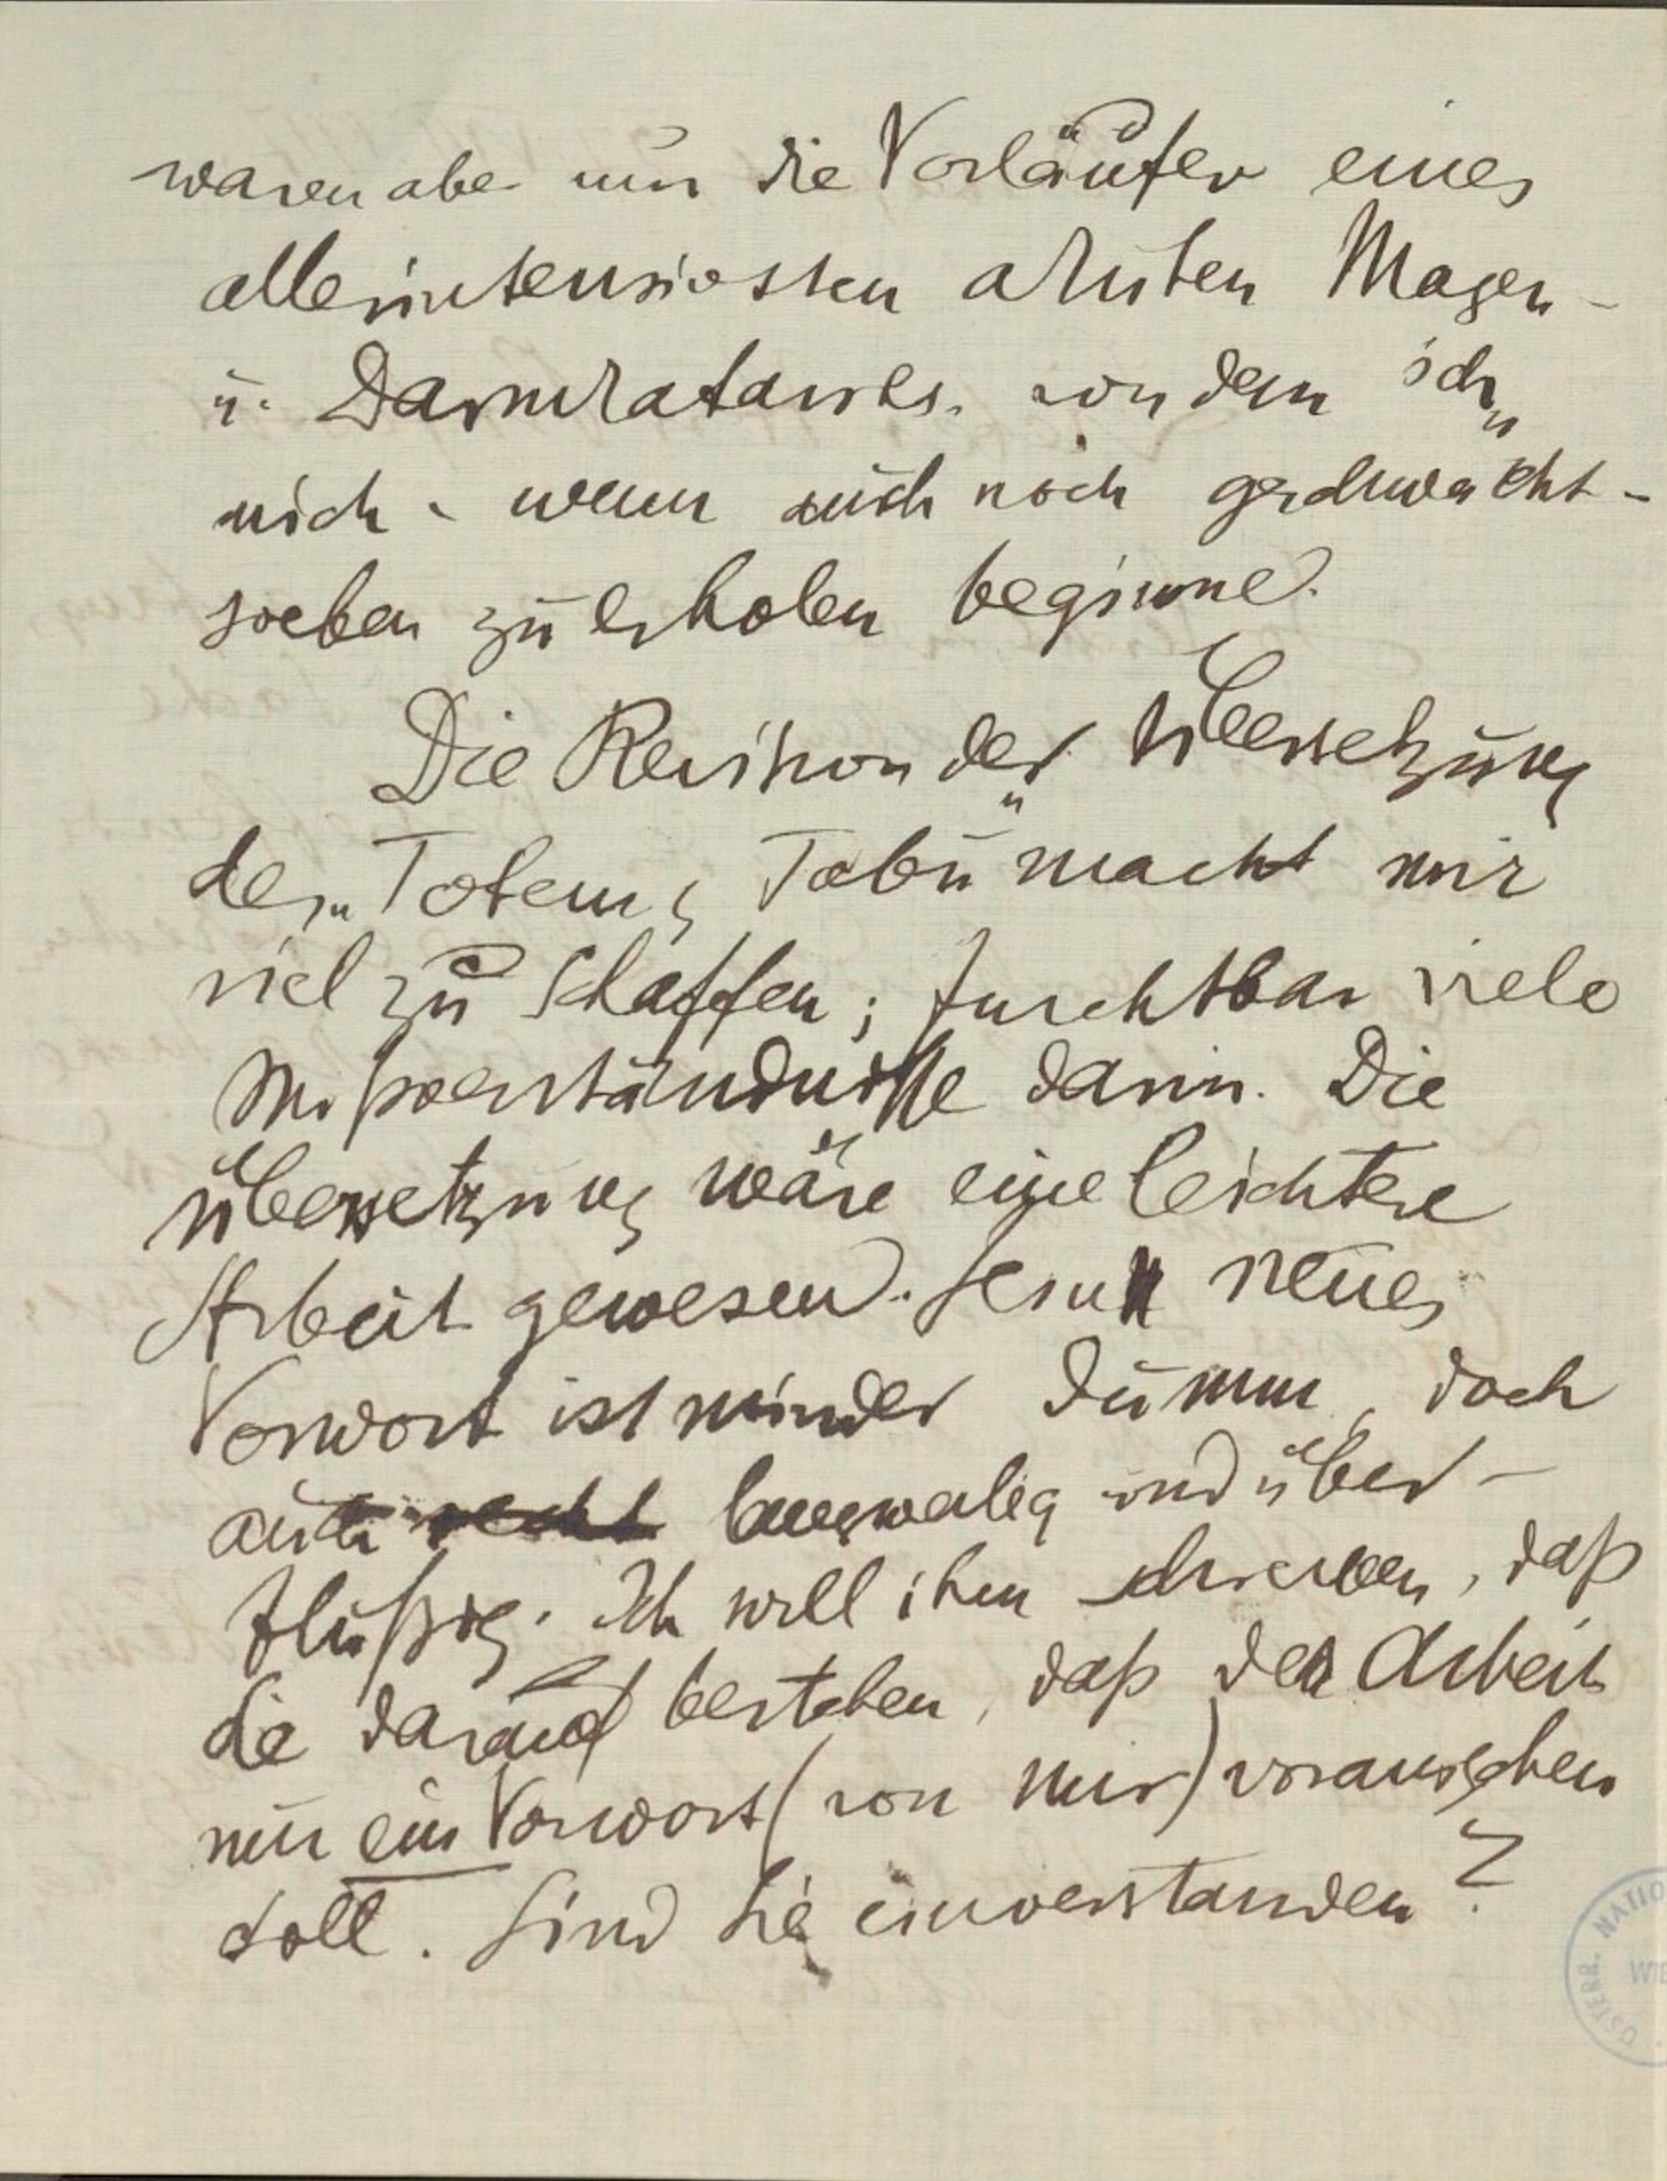 waren aber nur die Vorläufer eines
allerintensivsten akuten Magen-
u. Darmkatarrhs, von dem ich
mich - wenn auch noch geschwächt -
soeben zu erholen beginne.
Die Revision der Übersetzung
des „Totem & Tabu" macht mir
viel zu schaffen; furchtbar viele
Mißverständnisse darin. Die
Übersetzung wäre eine leichtere
Arbeit gewesen. Sein neues
Vorwort ist minder dumm, doch
auch recht langweilig und über-
flüßig. Ich will ihm schreiben, daß
Sie darauf bestehen, daß der Arbeit
nur ein Vorwort (von mir) vorausgehen
soll. Sind Sie einverstanden?
ÖSTERR. NATIO
WIE